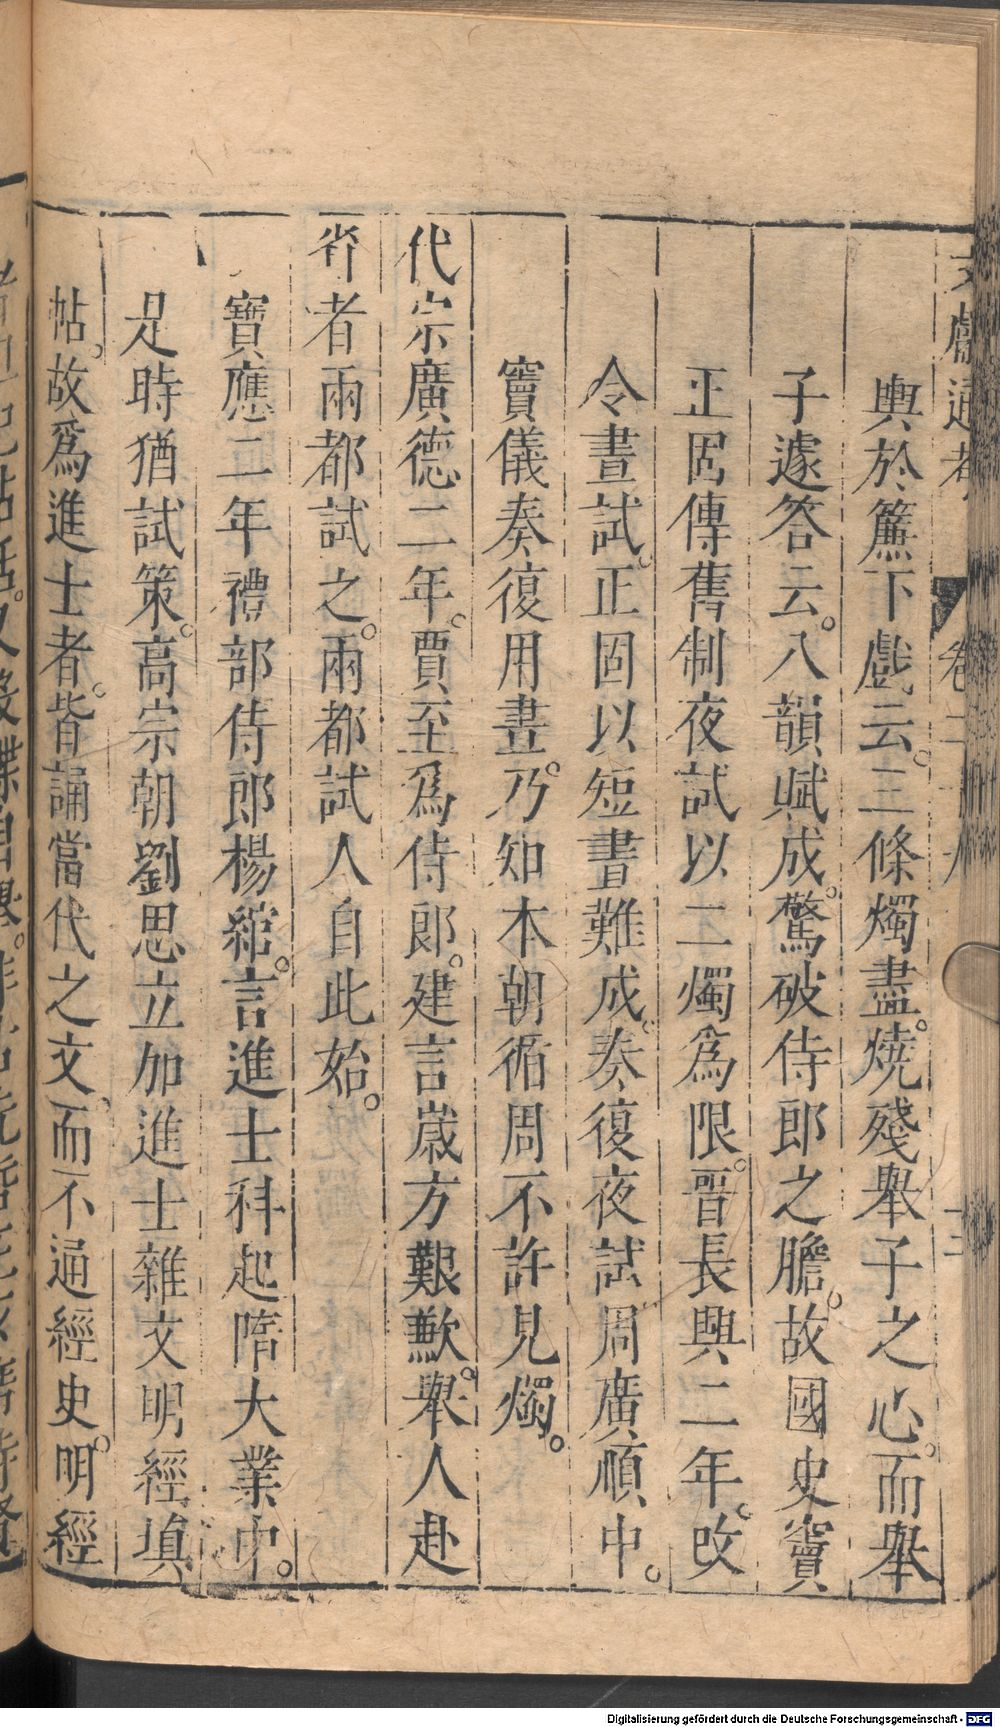 文獻通考 卷二十九 十三
輿於簾下戲云。三條燭盡。燒殘舉子之心。而舉
子遽答云。八韻賦成。驚破侍郎之膽。故國史竇
正固傳舊制夜試以二燭爲限。晉長興二年。改
令晝試。正固以短晝難成。奏復夜試周廣順中。
竇儀奏復用晝。乃知本朝循周不許見燭。
代宗廣德二年。賈至爲侍郎。建言歲方艱歉。舉人赴
省者兩都試之。兩都試人自此始。
寶應二年禮部侍郎楊綰。言進士科起隋大業中。
是時猶試策。高宗朝劉思立加進士雜文明經填
帖。故爲進士者。皆誦當代之文。而不通經史。明經
Digitalisierung gefördert durch die Deutsche Forschungsgemeinschaft - DFG